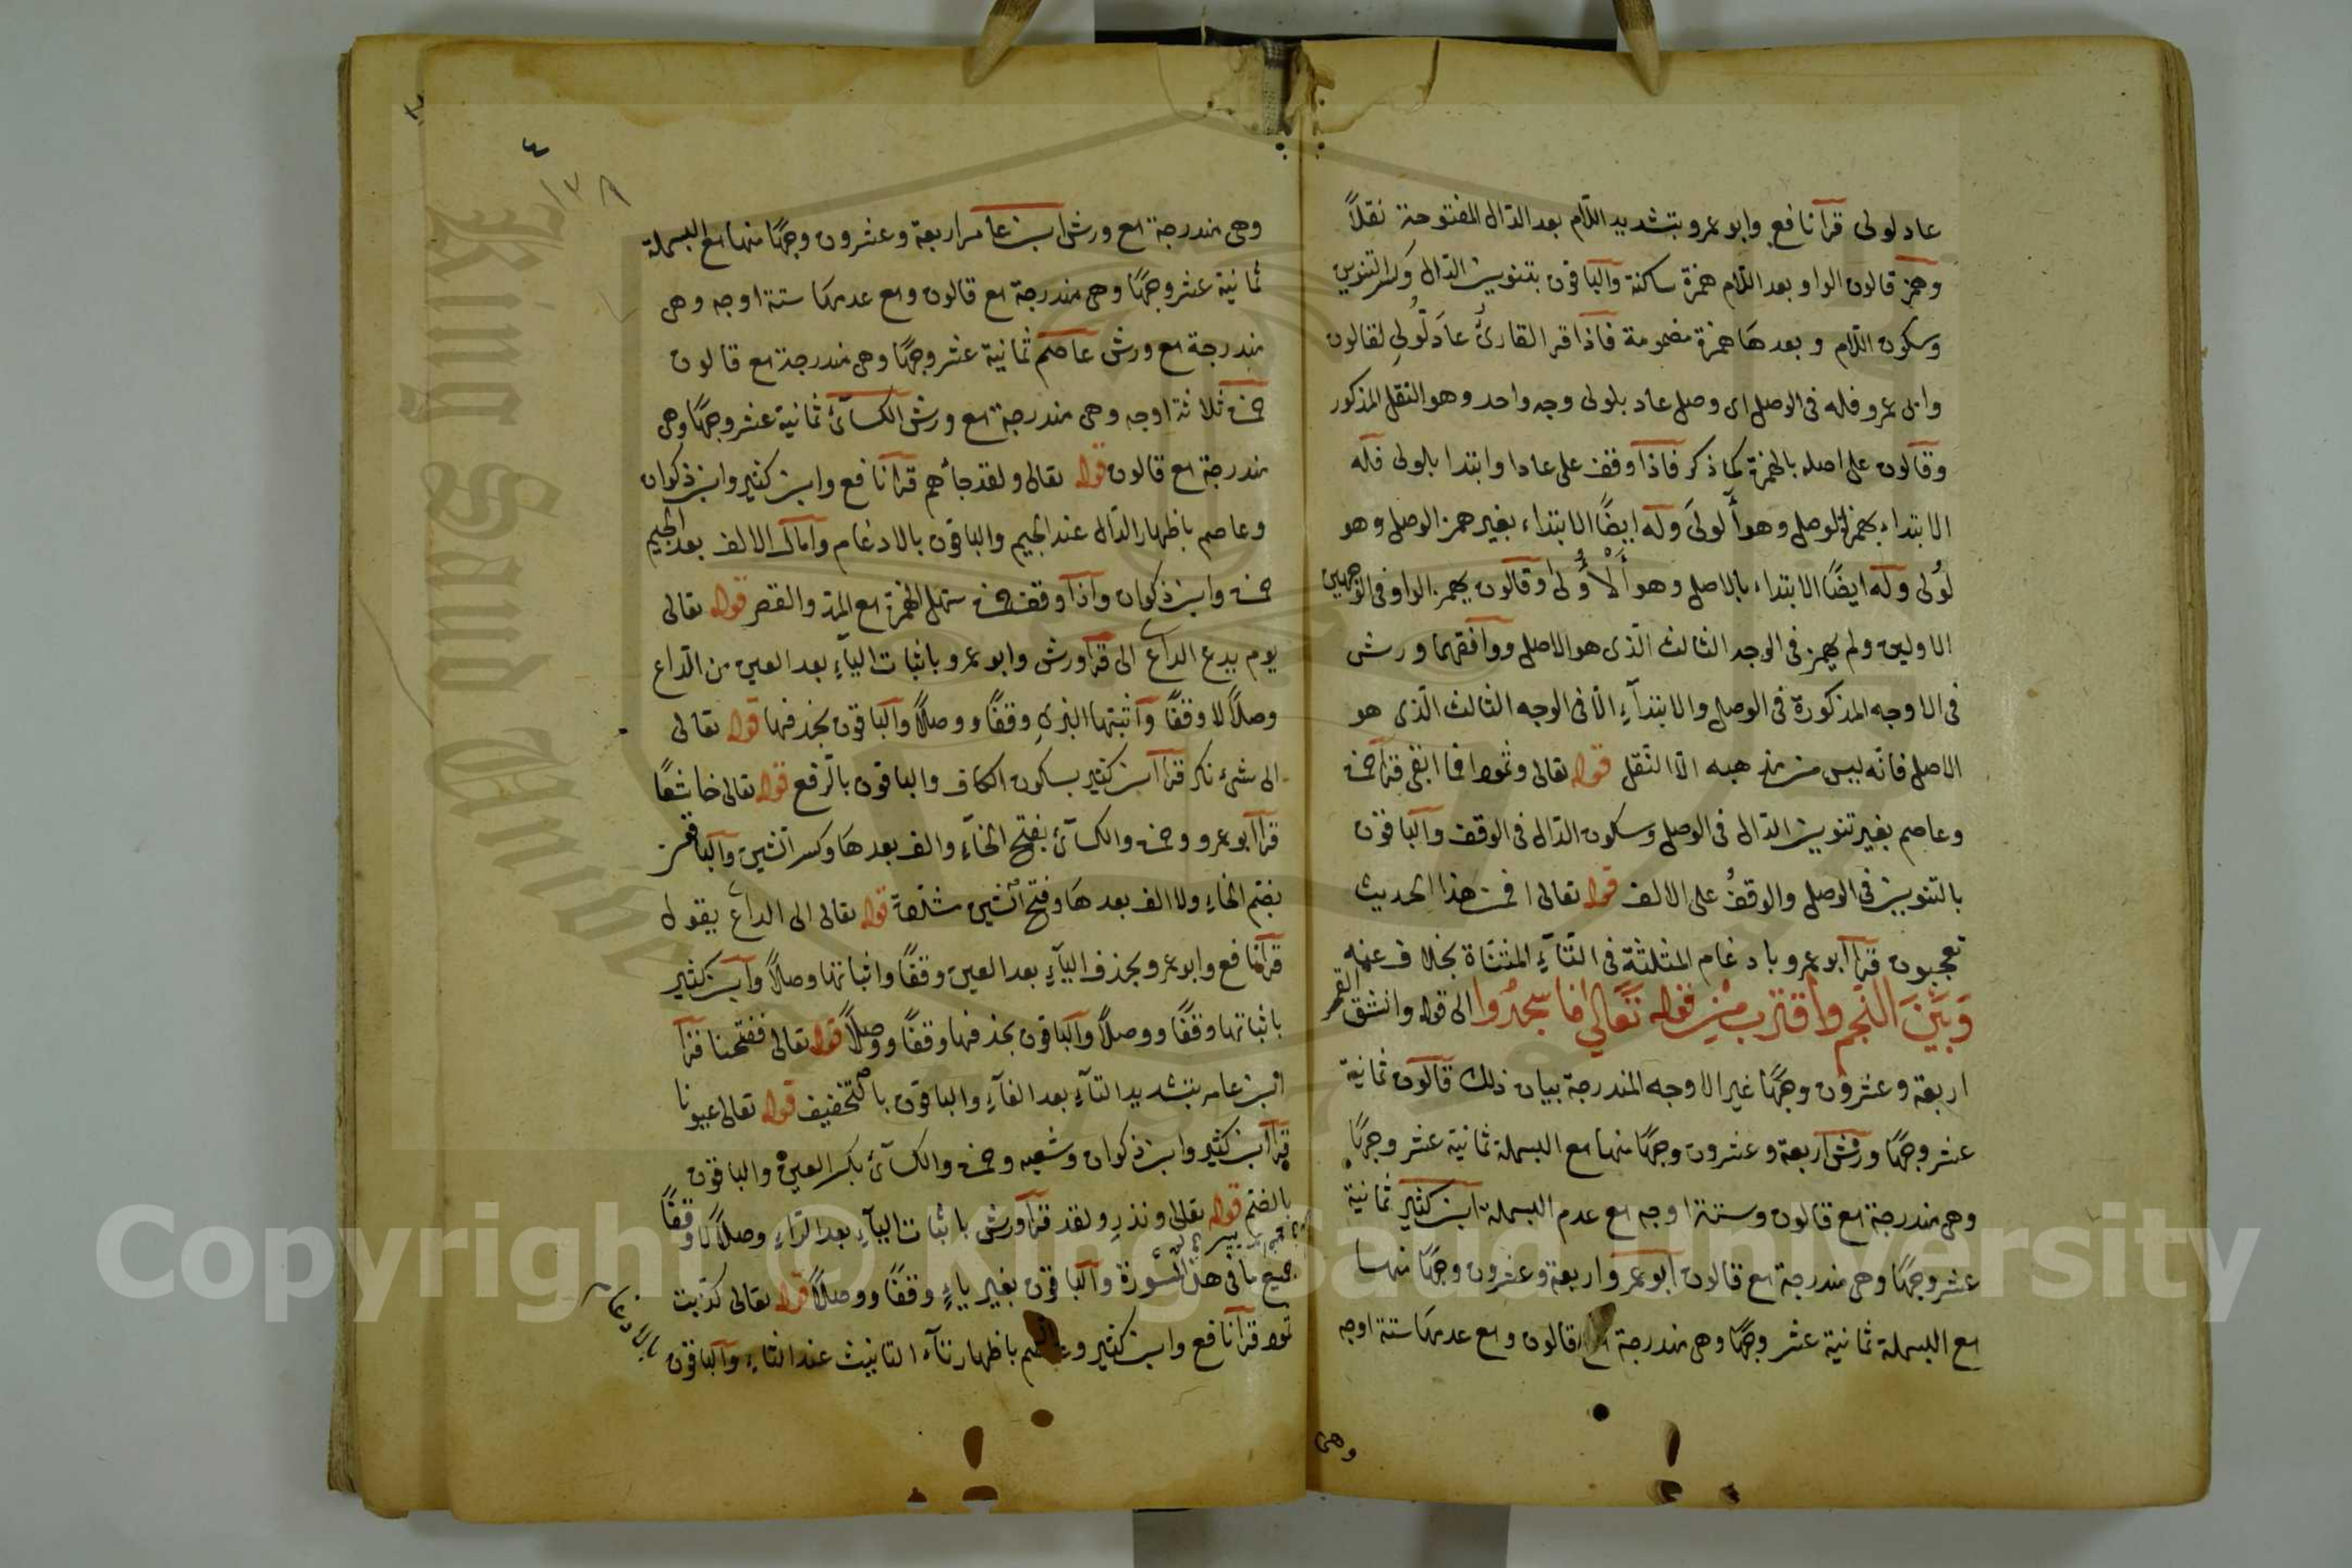 عاد لولى قرأ نافع وابو عمرو بتشديد اللّام بعد الدّال المفتوحة نقلاً
وهمز قالون الواو بعد اللّام همزة ساكنة والباقون بتنوين الدّال وكسر التنوين
وسكون اللّام وبعدها همزة مضمومة فاذا قرا القارئ عادَ لُّولى لقالون
وابى عمرو فله فى الوصل اى وصل عاد بلولى وجه واحد وهو النقل المذكور
وقالون على اصله بالهمزة كما ذكر فاذا وقف على عادا وابتدا بلولى فله
الابتداء بهمزة الوصل وهو أَلُولىَ وله ايضًا الابتداء بغير همز الوصل وهو
لُولى وله ايضًا الابتداء بالاصل وهو أَلْاُولى وقالون يهمز الواو فى الوجهين
الاولين ولم يهمز فى الوجه الثالث الّذى هو الاصل ووافقهما ورش
فى الاوجه المذكورة فى الوصل والابتدآءِ الّا فى الوجه الثالث الّذى هو
الاصل فانّه ليس من مذهبه الّا النّقل قوله تعالى وثمود افما ابقى قرأ حمزة
وعاصم بغير تنوين الدّال فى الوصل وسكون الدّال فى الوقف والباقون
بالتنوين فى الوصل والوقف على الالف قوله تعالى افمن هذا الحديث
تعجبون قرأ ابو عمرو بادغام المثلثة فى التّآءِ المثنّاة بخلاف عنه
وَبَيْنَ النَّجْمِ واقتربت مِنْ قوله تَعَالي فاسجدُوا الى قوله وانشق القمر
اربعة وعشرون وجهًا غير الاوجه المندرجة بيان ذلك قالون ثمانية
عشر وجهًا ورش اربعة وعشرون وجهًا منها مع البسملة ثمانية عشر وجهًا
وهى مندرجة مع قالون وستة اوجه مع عدم البسملة ابن كثير ثمانية
عشر وجهًا وهى مندرجة مع قالون ابو عمرو اربعة وعشرون وجهًا منها
مع البسملة ثمانية عشر وجهًا وهى مندرجة مع قالون ومع عدمها ستة اوجه
وهى
٤
١٣٨
وهى مندرجة مع ورش ابن عامر اربعة وعشرون وجهًا منها مع البسملة
ثمانية عشر وجهًا وهى مندرجة مع قالون ومع عدمها ستة اوجه وهى
مندرجة مع ورش عاصم ثمانية عشر وجهًا وهى مندرجة مع قالون
حمزة ثلاثة اوجه وهى مندرجة مع ورش الكسآئ ثمانية عشر وجهًا وهى
مندرجة مع قالون قوله تعالى ولقد جأهم قرأ نافع وابن كثير وابن ذكوان
وعاصم باظهار الدّال عند الجيم والباقون بالادغام وامال الالف بعد الجيم
حمزة وابن ذكوان واذا وقف حمزة سهل الهمزة مع المدّ والقصر قوله تعالى
يوم يدع الداع الى قرأ ورش وابو عمرو باثبات اليآءِ بعد العين من الدّاع
وصلاً لا وقفًا وأثبتها البزى وقفًا ووصلاً والباقون بحذفها قوله تعالى
الى شئ نكر قرأ ابن كثير بسكون الكاف والباقون بالرّفع قوله تعالى خاشعًا
قرأ ابو عمرو وحمزة والكسآئ بفتح الخآءِ والف بعدها وكسر الشين والباقون
بضم الخاءِ ولا الف بعدها وفتح الشين مشدّدة قوله تعالى الى الداع يقول
قرأ نافع وابو عمرو بحذف اليآءِ بعد العين وقفًا واثباتها وصلاً وابن كثير
باثباتها وقفًا ووصلاً والباقون بحذفها وقفًا ووصلاً قوله تعالى ففتحنا قرأ
ابن عامر بتشديد التآءِ بعد الفآءِ والباقون بالتخفيف قوله تعالى عيونا
قرأ ابن كثير وابن ذكوان وشعبه وحمزة والكسآئ بكسر العين والباقون
بالضم قوله تعالى ونذرِ ولقد قرأ ورش باثبات اليآءِ بعد الرّاءِ وصلاً لا وقفًا
جميع ما فى هذه السّورة والباقون بغير ياءٍ وقفًا ووصلاً قوله تعالى كذّبت
ثمود قرأ نافع وابن كثير وعاصم باظهار تآء التانيث عند الثاءِ والباقون
بالادغام
Copyright © King Saud University
King Saud Unive